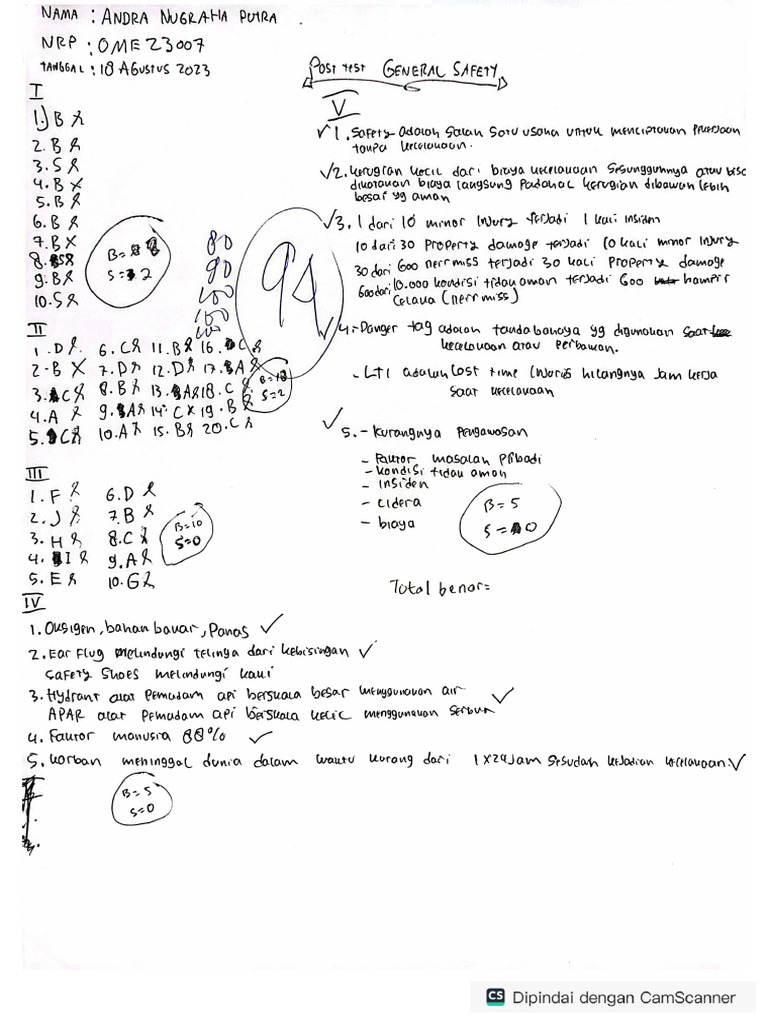 NAMA : ANDRA NUGRAHA PUTRA
NRP : OME23007
TANGGAL : 18 AGUSTUS 2023
POST TEST GENERAL SAFETY
I
1. B
2. B
3. S
4. B
5. B
6. B
7. B
8. S
9. B
10. S
B = 8
S = 2
80
90
100
100
100
94
II
1. D
2. B
3. C
4. A
5. C
6. C
7. D
8. B
9. A
10. A
11. B
12. D
13. A
14. C
15. B
16. C
17. A
18. C
19. B
20. C
B = 18
S = 2
III
1. F
2. J
3. H
4. I
5. E
6. D
7. B
8. C
9. A
10. G
B = 10
S = 0
IV
1. Oksigen, bahan bakar, Panas
2. Ear Flug Melindungi telinga dari kebisingan
Safety Shoes melindungi kaki
3. Hydrant alat Pemadam api berskala besar menggunakan air
APAR alat Pemadam api berskala kecic menggunakan serbuk
4. Faktor manusia 88%
5. korban meninggal dunia dalam waktu kurang dari 1x24 jam sesudah kejadian kecelakaan
B = 5
S = 0
V
1. Safety adalah salah satu usaha untuk menciptakan pekerjaan
tanpa kecelakaan.
2. kerugian kecil dari biaya kecelakaan sesungguhnya atau bisa
dikatakan biaya langsung padahal kerugian dibawah lebih
besar yg aman
3. 1 dari 10 minor injury terjadi 1 kali insiden
10 dari 30 Property damage terjadi 10 kali minor injury
30 dari 600 nerrmiss terjadi 30 kali Property damage
600 dari 10.000 kondisi tidak aman terjadi 600 hampir
celaka (nerrmiss)
4. - Danger tag adalah tanda bahaya yg digunakan saat
kecelakaan atau perbaikan.
- LTI adalah Lost time injuries hilangnya jam kerja
saat kecelakaan
5. - kurangnya Pengawasan
- Faktor masalah Pribadi
- kondisi tidak aman
- insiden
- cidera
- biaya
B = 5
S = 0
Total benar =
CS Dipindai dengan CamScanner